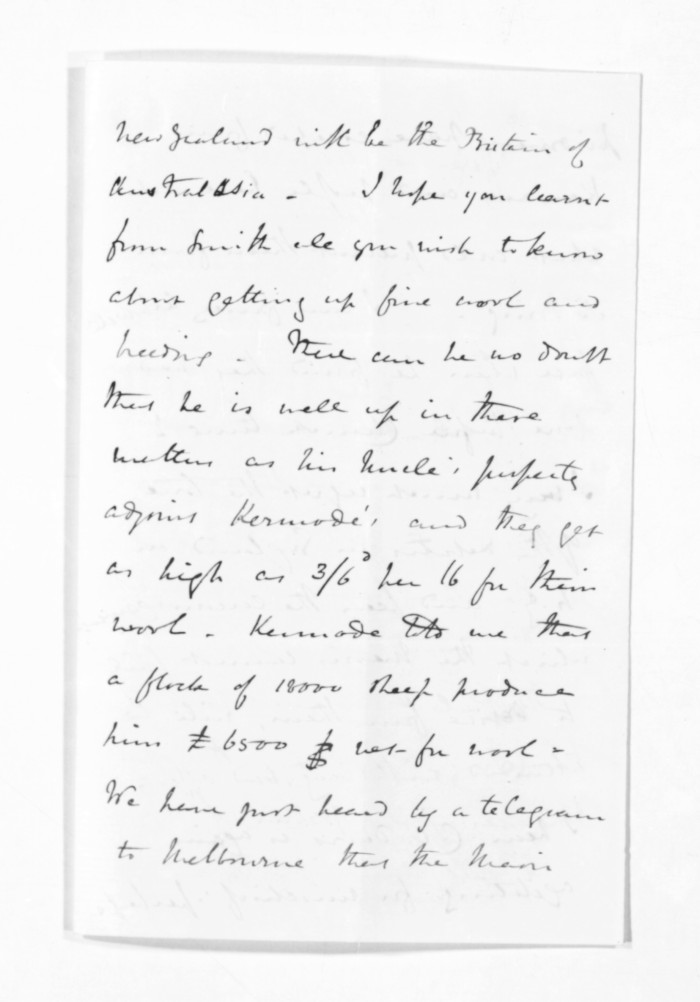 New Zealand will be the Britain of
Australasia - I hope you learnt
from Smith all you wish to know
about getting up fine wool and
breeding - There can be no doubt
that he is well up in these
matters as his Uncle's property
adjoins Kermode's and they get
as high as 3/6d per lb for their
wool - Kermode tells me that
a flock of 18000 sheep produce
him £6500 net for wool -
We have just heard by a telegram
to Melbourne that the